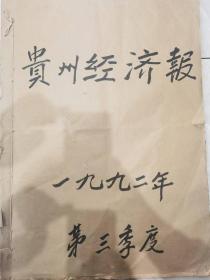 貴州经济報
一九九二年
第三季度